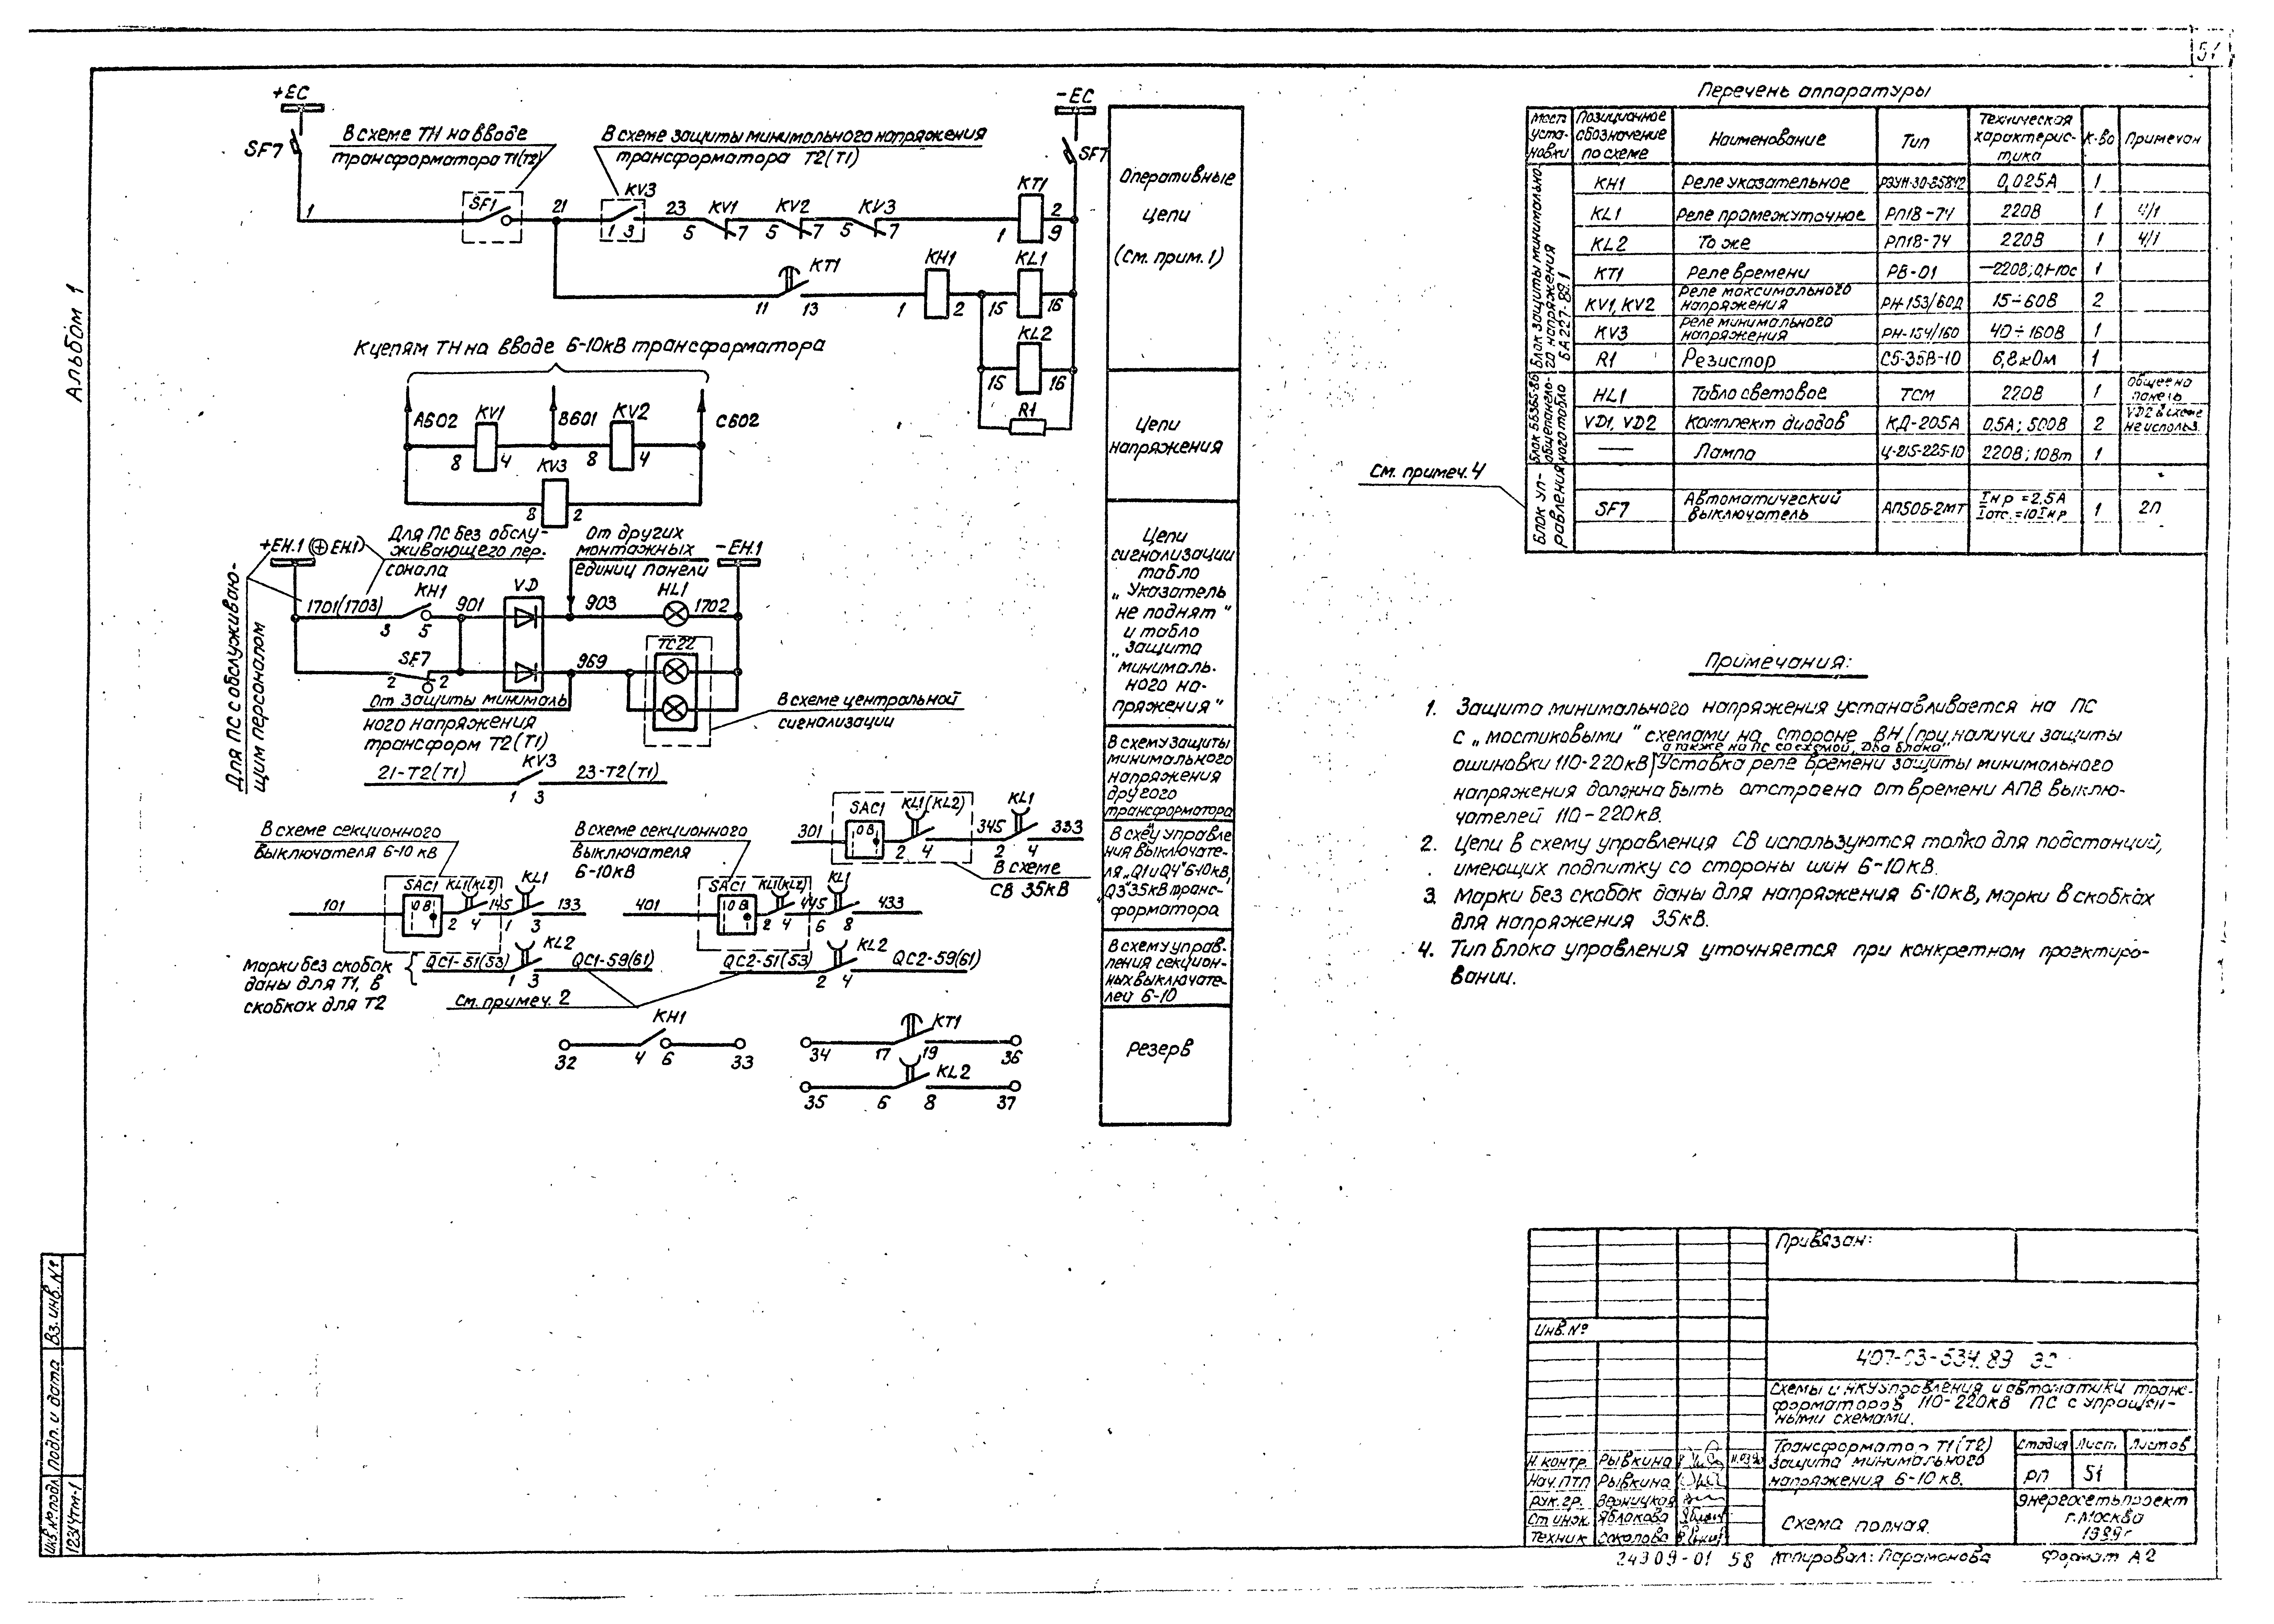 51
Альбом 1
+ЕС
SF7
В схеме ТН на вводе
трансформатора Т1(Т2)
В схеме защиты минимального напряжения
трансформатора Т2(Т1)
-ЕС
SF7
1
SF1
21
KV3
1 3
23
KV1
5 7
KV2
5 7
KV3
5 7
KT1
1
2
9
KT1
11 13
KH1
1 2
KL1
15 16
KL2
15 16
R1
К цепям ТН на вводе 6-10кВ трансформатора
А602
KV1
В601
KV2
С602
8 4
8 4
KV3
8 2
+ЕН.1 (⊕ЕН.1)
Для ПС без обслу-
живающего пер.
сонала
От других
монтажных
единиц панели
-ЕН.1
Для ПС с обслуживаю-
щим персоналом
1701(1703)
KH1
3 5
901
VD
903
HL1
1702
SF7
2 2
969
ТС22
От защиты минималь
ного напряжения
трансформ Т2(Т1)
В схеме центральной
сигнализации
21-Т2(Т1)
KV3
1 3
23-Т2(Т1)
В схеме секционного
выключателя 6-10 кВ
В схеме секционного
выключателя
6-10кВ
301
SAC1
О В
KL1(KL2)
2 4
345
KL1
2 4
333
В схеме
СВ 35кВ
101
SAC1
О В
KL1(KL2)
2 4
145
KL1
1 3
133
401
SAC1
О В
KL1(KL2)
2 4
445
KL1
6 8
433
Марки без скобок
даны для Т1, в
скобках для Т2
QC1-51(53)
KL2
1 3
QC1-59(61)
См. примеч. 2
QC2-51(53)
KL2
2 4
QC2-59(61)
KH1
32 4 6 33
KT1
34 17 19 36
KL2
35 6 8 37
Оперативные
цепи
(см. прим. 1)
Цепи
напряжения
Цепи
сигнализации
табло
„Указатель
не поднят"
и табло
„Защита
минималь-
ного на-
пряжения"
В схему защиты
минимального
напряжения
другого
трансформатора
В схему управле
ния выключате-
ля „Q1 и Q4" 6-10кВ,
„Q3" 35кВ транс-
форматора
В схему управ-
ления секцион-
ных выключате-
лей 6-10
Резерв
Перечень аппаратуры
Место уста-новки | Позиционное обозначение по схеме | Наименование | Тип | Техническая характерис-тика | К-во | Примечан
Блок защиты минимально-
го напряжения
БА 227-89.1
KH1 Реле указательное РЭУ11-30-85842 0,025А 1
KL1 Реле промежуточное РП18-74 220В 1 4/1
KL2 То же РП18-74 220В 1 4/1
KT1 Реле времени РВ-01 —220В; 0,1-10с 1
KV1, KV2 Реле максимального напряжения РН-153/60Д 15÷60В 2
KV3 Реле минимального напряжения РН-154/160 40÷160В 1
R1 Резистор С5-35В-10 6,8кОм 1
общепанель-
ного табло
HL1 Табло световое ТСМ 220В 1 Общее на панель
VD1, VD2 Комплект диодов КД-205А 0,5А; 500В 2 VD2 в схеме не использ.
— Лампа Ц-215-225-10 220В; 10Вт 1
См. примеч. 4
Блок уп-
равления
SF7 Автоматический выключатель АП50Б-2МТ Iнр=2,5А Iотс.=10Iнр 1 2П
Примечания:
1. Защита минимального напряжения устанавливается на ПС
с „мостиковыми" схемами на стороне ВН (при наличии защиты
а также на ПС со схемой „Два блока"
ошиновки 110-220кВ) Уставка реле времени защиты минимального
напряжения должна быть отстроена от времени АПВ выклю-
чателей 110-220кВ.
2. Цепи в схему управления СВ используются только для подстанций,
имеющих подпитку со стороны шин 6-10кВ.
3. Марки без скобок даны для напряжения 6-10кВ, марки в скобках
для напряжения 35кВ.
4. Тип блока управления уточняется при конкретном проектиро-
вании.
Привязан:
Инв. №
407-03-534.89 ЭС
Схемы и НКУ управления и автоматики транс-
форматоров 110-220кВ ПС с упрощен-
ными схемами.
Трансформатор Т1(Т2)
Защита минимального
напряжения 6-10 кВ.
Стадия Лист Листов
РП 51
Схема полная.
Энергосетьпроект
г. Москва
1989г
Н. контр. Рывкина
Нач. ПТП Рывкина
Рук. гр.
Ст инж. Яблокова
Техник Соколова
24309-01 58 Копировал: Парамонова Формат А2
Инв. № подл. Подп. и дата Вз. инв. №
12314тм-1